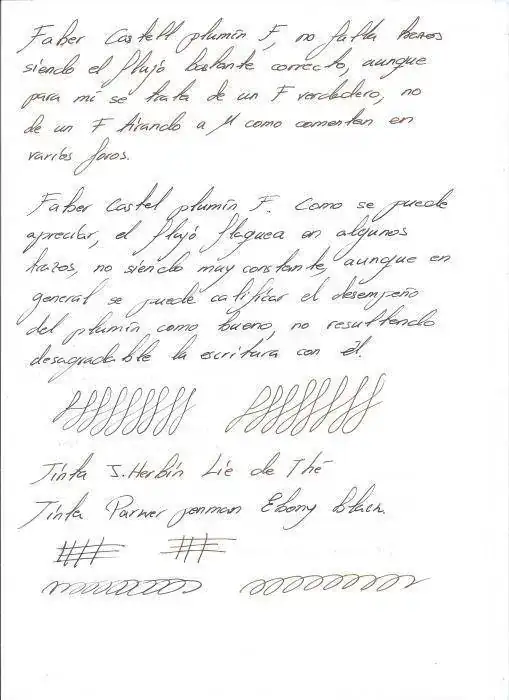 Faber Castell plumín F, no falla trazos
siendo el flujo bastante correcto, aunque
para mí se trata de un F verdadero, no
de un F tirando a M como comentan en
varios foros.
Faber Castel plumín F. Como se puede
apreciar, el flujo flaquea en algunos
trazos, no siendo muy constante, aunque en
general se puede calificar el desempeño
del plumín como bueno, no resultando
desagradable la escritura con él.
Tinta J. Herbin Lie de Thé
Tinta Parker penman Ebony Black.